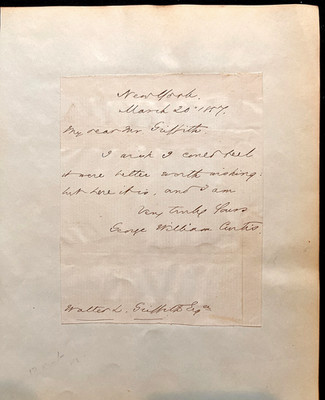 New York.
March 20th 1857.
My dear Mr. Griffith,
I wish I could feel
it were better worth making:
but here it is, and I am
Very truly Yours
George William Curtis
Walter L. Griffith Esq